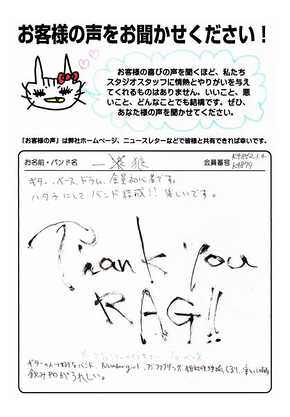 お客様の声をお聞かせください！
お客様の喜びの声を聞くほど、私たち
スタジオスタッフに情熱とやりがいを与え
てくれるものはありません。いいこと、悪
いこと、どんなことでも結構です。ぜひ、
あなた様の声を聞かせてください。
「お客様の声」は弊社ホームページ、ニュースレターなどで皆様と共有できれば幸いです。
お名前・バンド名 一 狼 会員番号
ギター、ベース、ドラム、全員初心者です。
ハタチにしてバンド結成！！楽しいです。
Thank you
RAG!!
ギターの人の好きなバンド、Numbergirl、
飲み物がうれしい。